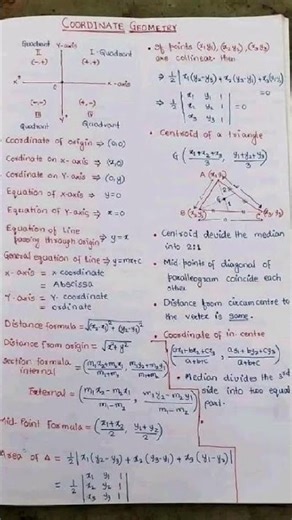 COORDINATE GEOMETRY
Quadrant Y-axis
II
(-,+)
I Quadrant
(+,+)
X-axis
(-,-)
III
Quadrant
(+,-)
IV
Quadrant
Coordinate of origin ⇒ (0,0)
Cordinate on x-axis ⇒ (x,0)
Cordinate on Y-axis ⇒ (0,y)
Equation of x-axis ⇒ y=0
Equation of Y-axis ⇒ x=0
Equation of Line
passing through origin ⇒ y=x
General equation of line ⇒ y=mx+c
x-axis = x coordinate
= Abscissa
Y-axis = Y-coordinate
= ordinate
Distance formula =
Distance from origin = √x²+y²
Section formula
internal = (m₁x₂+m₂x₁/m₁+m₂, m₁y₂+m₂y₁/m₁+m₂)
External = (m₁x₂-m₂x₁/m₁-m₂, m₁y₂-m₂y₁/m₁-m₂)
Mid Point Formula = (x₁+x₂/2, y₁+y₂/2)
Area of Δ = ½|x₁(y₂-y₃)+x₂(y₃-y₁)+x₃(y₁-y₂)|
= ½ |x₁ y₁ 1|
|x₂ y₂ 1|
|x₃ y₃ 1|
• If points (x₁,y₁), (x₂,y₂), (x₃,y₃)
are collinear then
=0
⇒ ½ |x₁ y₁ 1|
|x₂ y₂ 1| =0
|x₃ y₃ 1|
• Centroid of a triangle
G (x₁+x₂+x₃/3, y₁+y₂+y₃/3)
A (x₁,y₁)
G
B
(x₂,y₂)
C (x₃,y₃)
• Centroid devide the median
into 2:1
• Mid points of diagonal of
parallelogram coincide each
other
• Distance from circumcentre to
the vertex is same.
• Coordinate of in centre
(ax₁+bx₂+cx₃/a+b+c, ay₁+by₂+cy₃/a+b+c)
• Median divides the 3rd
side into two equal
part.